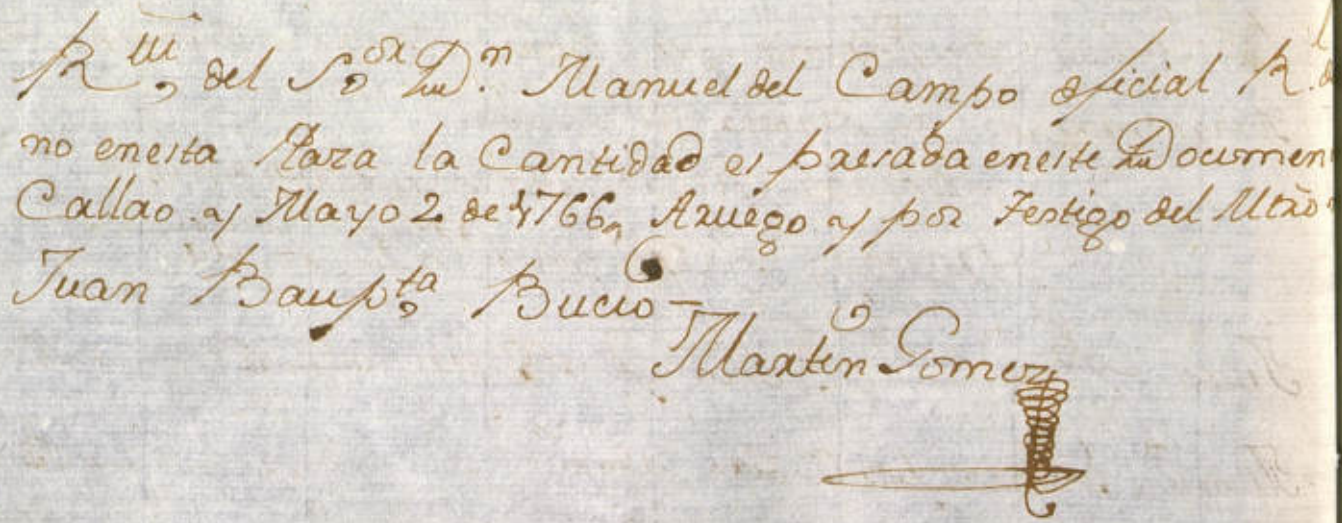 Rvi del S.or Dn. Manuel del Campo oficial Rl. d
no enesta Plaza la Cantidad espresada eneste Documen
Callao y Mayo 2 de 1766, Aruego y por Testigo del Mtro
Juan Baupta Bucio –
Martin Gomez